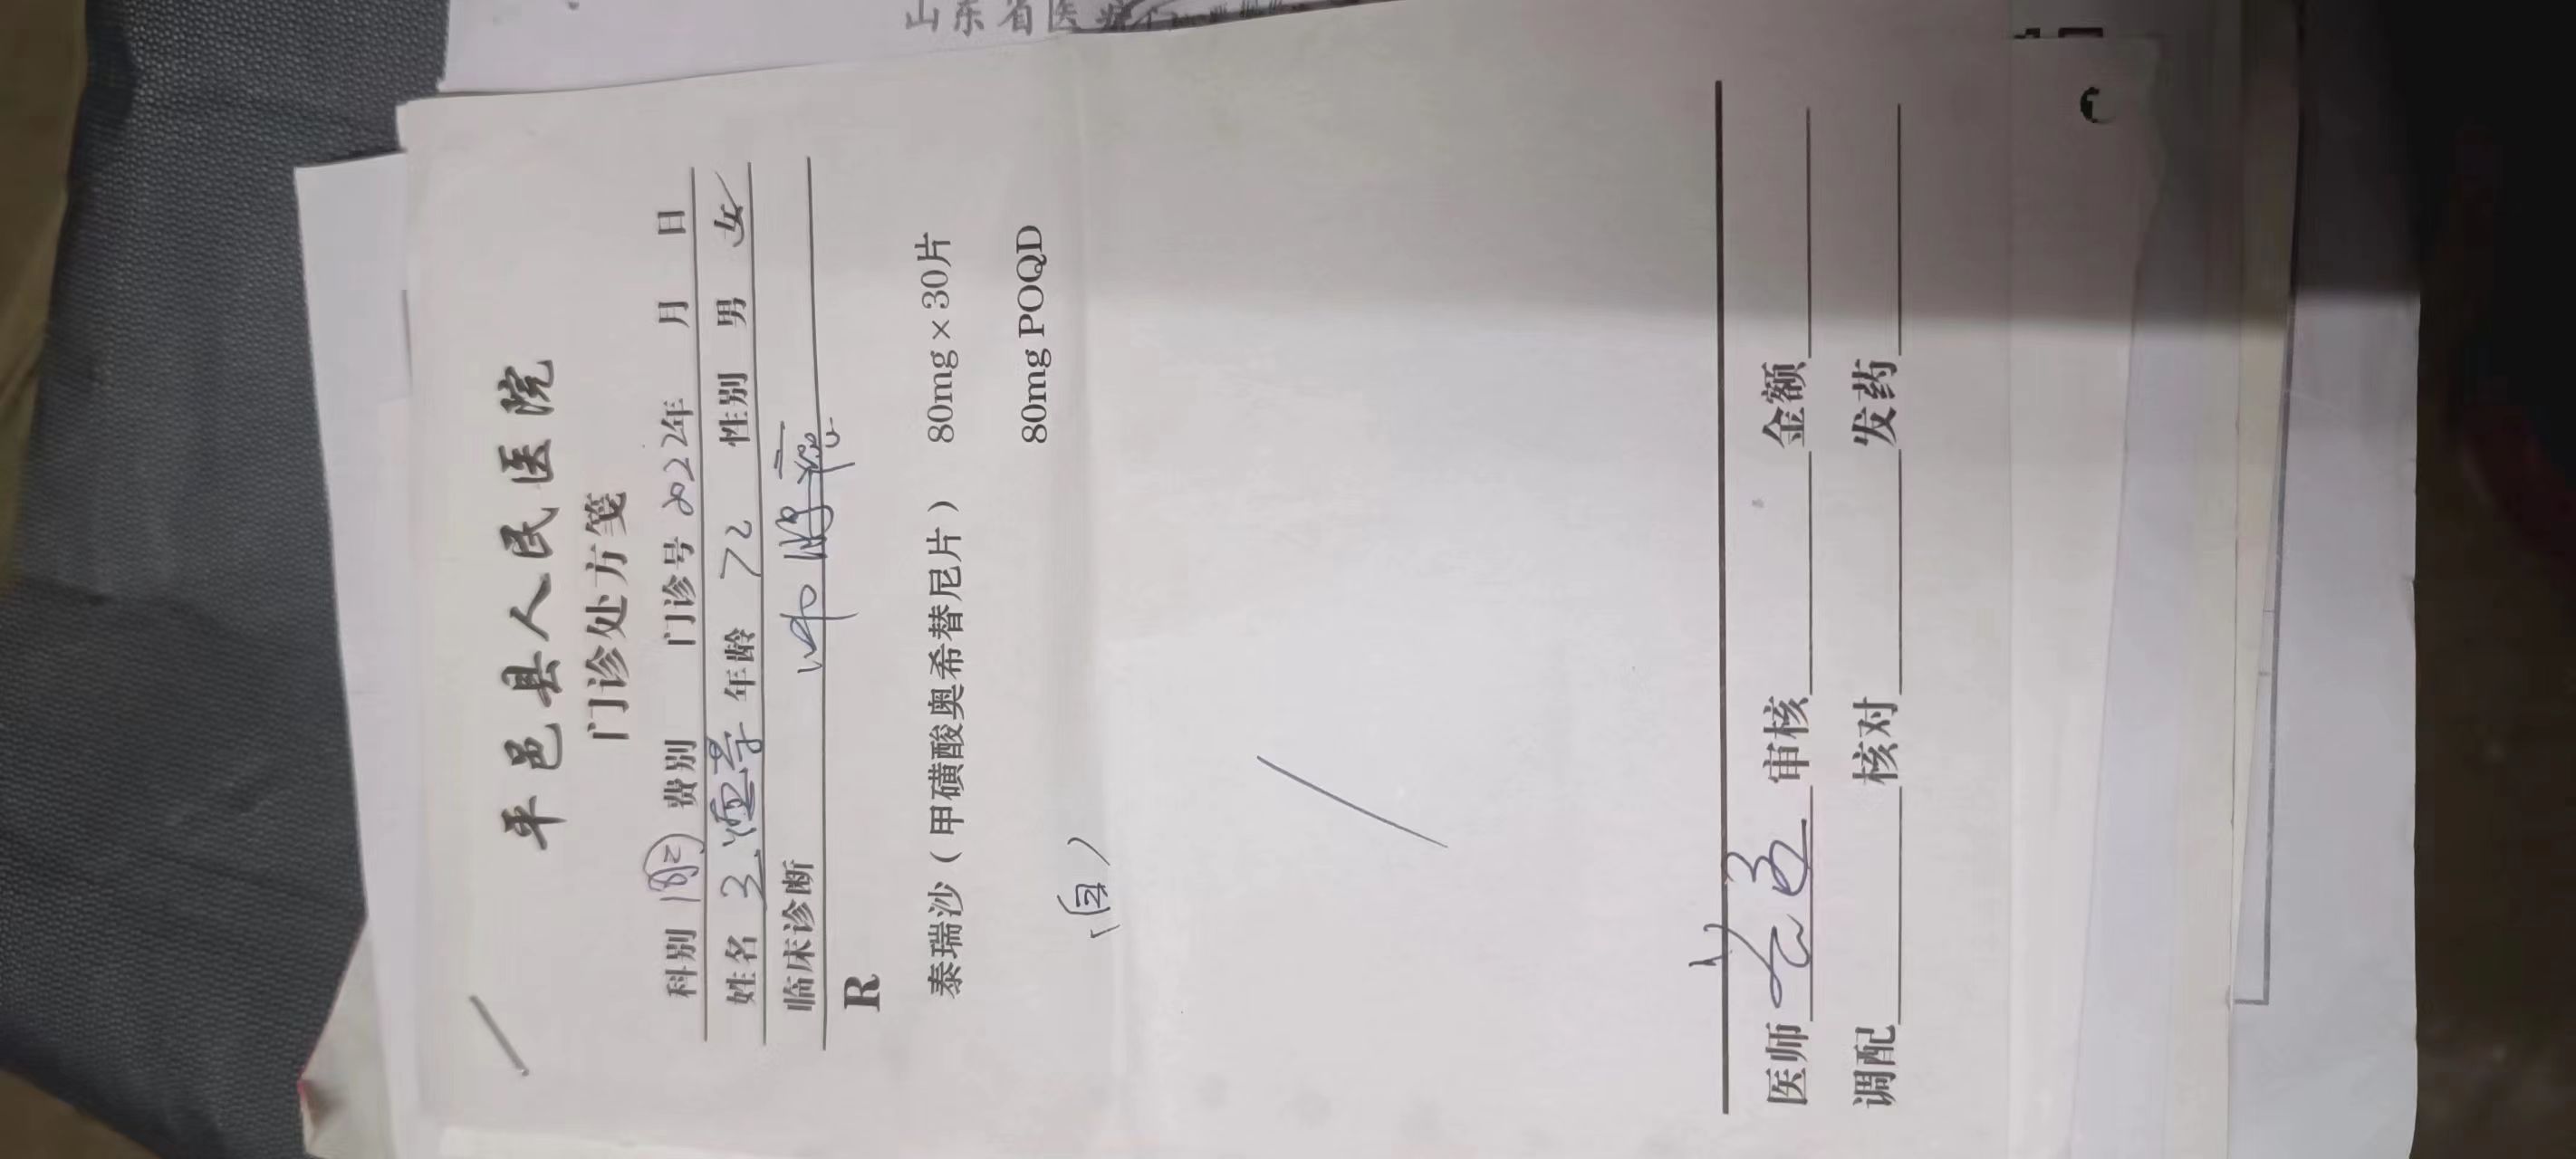 山东省医疗
平邑县人民医院
门诊处方笺
科别 费别 门诊号 2022年 月 日
姓名 年龄 72 性别 男 女
临床诊断 肺腺癌
R
泰瑞沙（甲磺酸奥希替尼片） 80mg×30片
80mg POQD
（自）
医师 审核 金额
调配 核对 发药